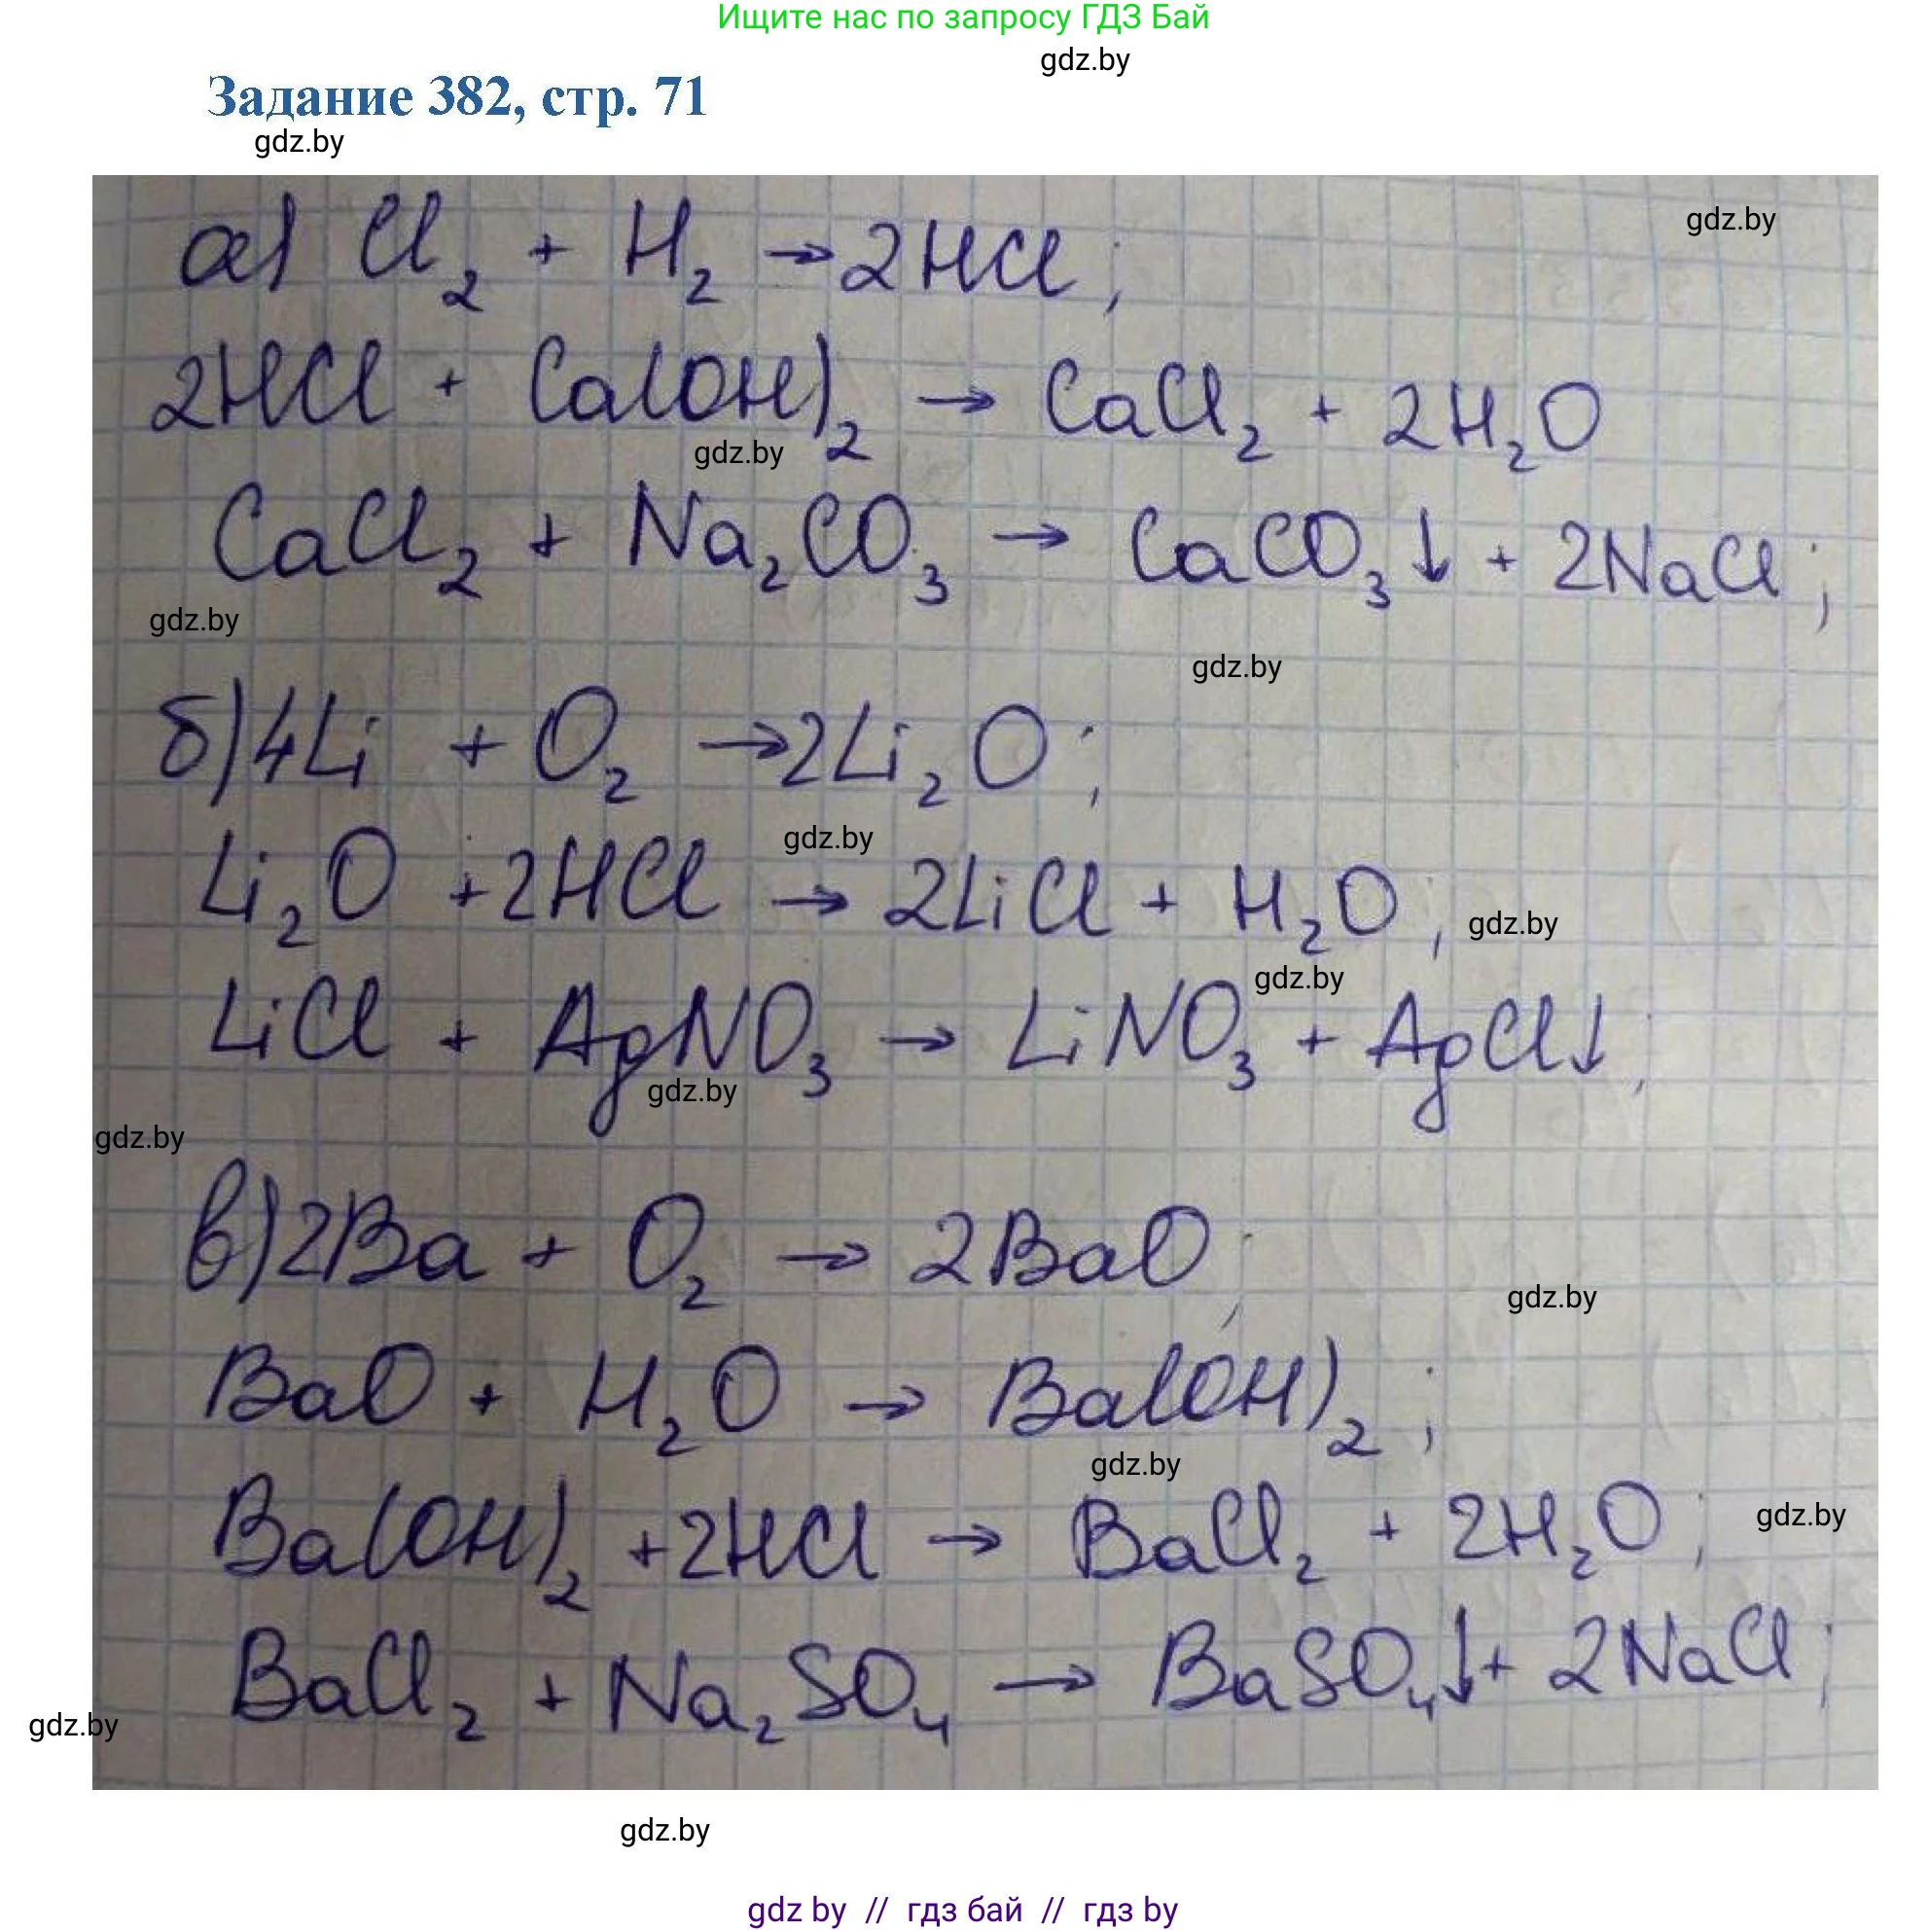 Ищите нас по запросу ГДЗ Бай
gdz.by
Задание 382, стр. 71
gdz.by
gdz.by
а) Cl₂ + H₂ → 2HCl;
2HCl + Ca(OH)₂ → CaCl₂ + 2H₂O
gdz.by
CaCl₂ + Na₂CO₃ → CaCO₃↓ + 2NaCl;
gdz.by
gdz.by
б) 4Li + O₂ → 2Li₂O;
gdz.by
Li₂O + 2HCl → 2LiCl + H₂O;
gdz.by
gdz.by
LiCl + AgNO₃ → LiNO₃ + AgCl↓;
gdz.by
gdz.by
в) 2Ba + O₂ → 2BaO;
gdz.by
BaO + H₂O → Ba(OH)₂;
gdz.by
gdz.by
Ba(OH)₂ + 2HCl → BaCl₂ + 2H₂O;
BaCl₂ + Na₂SO₄ → BaSO₄↓ + 2NaCl;
gdz.by
gdz.by
gdz by // гдз бай // гдз by